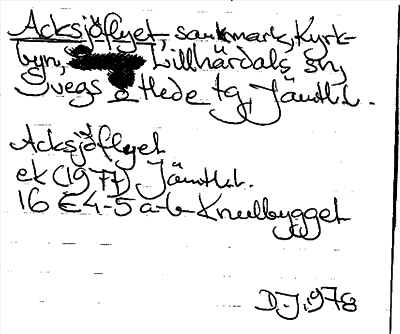 Acksjöflyet, sankmark, Kyrk-
byn, Lillhärdals sn,
Svegs o Hede tg, Jämtl.l.
Acksjöflyet
ek (1977) Jämtl.l.
16 E 4-5 a-b Knullbygget
D.J. 1978